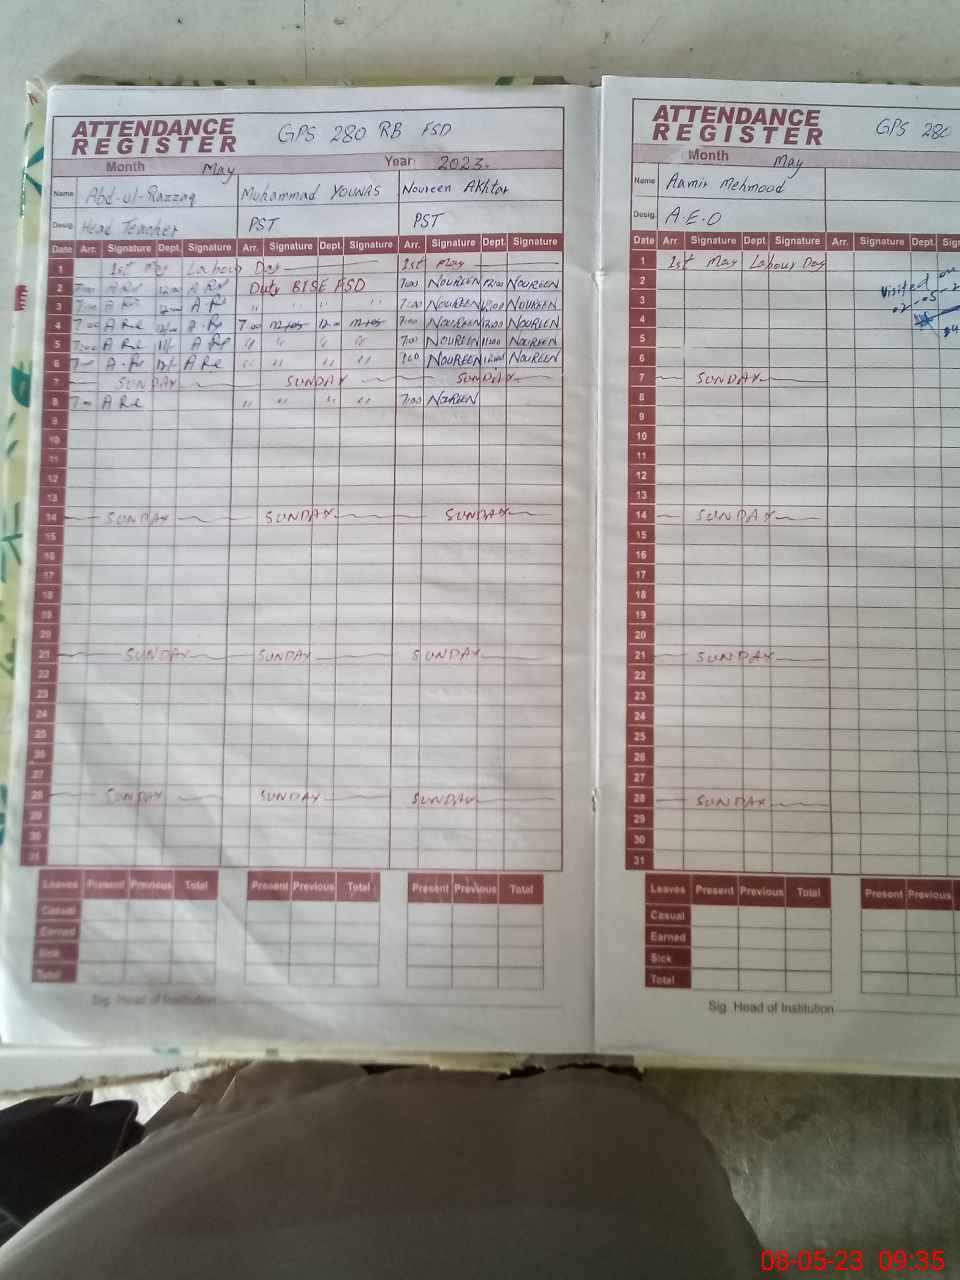 ATTENDANCE REGISTER GPS 280 RB FSD
Month May Year 2023.
Name Abd-ul-Razzaq Muhammad YOUNAS Noureen Akhtar
Desig. Head Teacher PST PST
Date Arr. Signature Dept. Signature Arr. Signature Dept. Signature Arr. Signature Dept. Signature
1 1st May Labour Day 1st May
2 7:00 12:00 Duty BISE FSD 7:00 NOUREEN 12:00 NOUREEN
3 " " " 7:00 NOUREEN 12:00 NOUREEN
4 7:00 7:00 7:00 NOUREEN 12:00 NOUREEN
5 7:00 " " " " 7:00 NOUREEN NOUREEN
6 " " " " NOUREEN NOUREEN
7 SUNDAY SUNDAY SUNDAY
8 " " " " 7:00 NOUREEN
9
10
11
12
13
14 SUNDAY SUNDAY SUNDAY
15
16
17
18
19
20
21 SUNDAY SUNDAY SUNDAY
22
23
24
25
26
27
28 SUNDAY SUNDAY SUNDAY
29
30
31
Leaves Present Previous Total Present Previous Total Present Previous Total
Casual
Earned
Sick
Total
Sig. Head of Institution
ATTENDANCE REGISTER GPS 280
Month May
Name Aamir Mehmood
Desig. A.E.O
Date Arr. Signature Dept. Signature Arr. Signature Dept.
1 1st May Labour Day
2 Visited on
3 02-05-2
4
5
6
7 SUNDAY
8
9
10
11
12
13
14 SUNDAY
15
16
17
18
19
20
21 SUNDAY
22
23
24
25
26
27
28 SUNDAY
29
30
31
Leaves Present Previous Total Present Previous
Casual
Earned
Sick
Total
Sig. Head of Institution
08-05-23 09:35